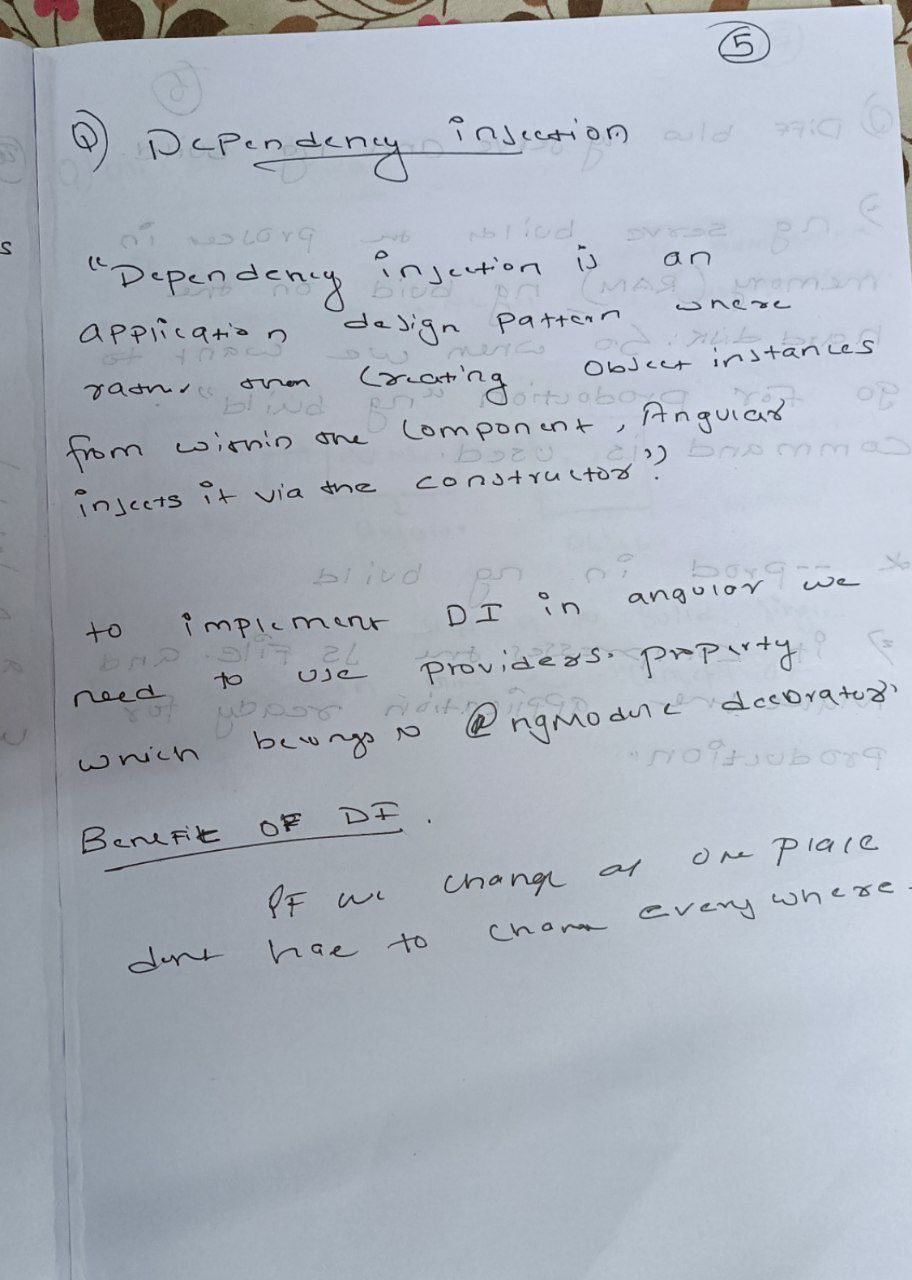 5
Q) Dependency injection
"Dependency injection is an
application design pattern where
rather then Creating Object instances
from within the Component, Angular
injects it via the constructor".
to implement DI in angular we
need to use providers. property
which belongs to @ngModule decorator
Benefit OF DI.
IF we change at one place
dont hae to chane everywhere.